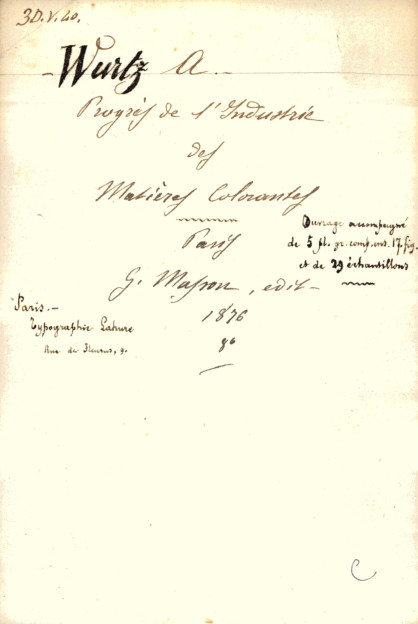 3D.V.40.
- Wurtz A. -
Progrès de l'Industrie
des
Matières Colorantes
Paris
Ouvrage accompagné
de 5 pl. gr. comp. ens. 17. fig.
et de 29 échantillons
G. Masson, edit -
1876
8°
Paris. -
Typographie Lahure
Rue de Fleurus, 9.
C